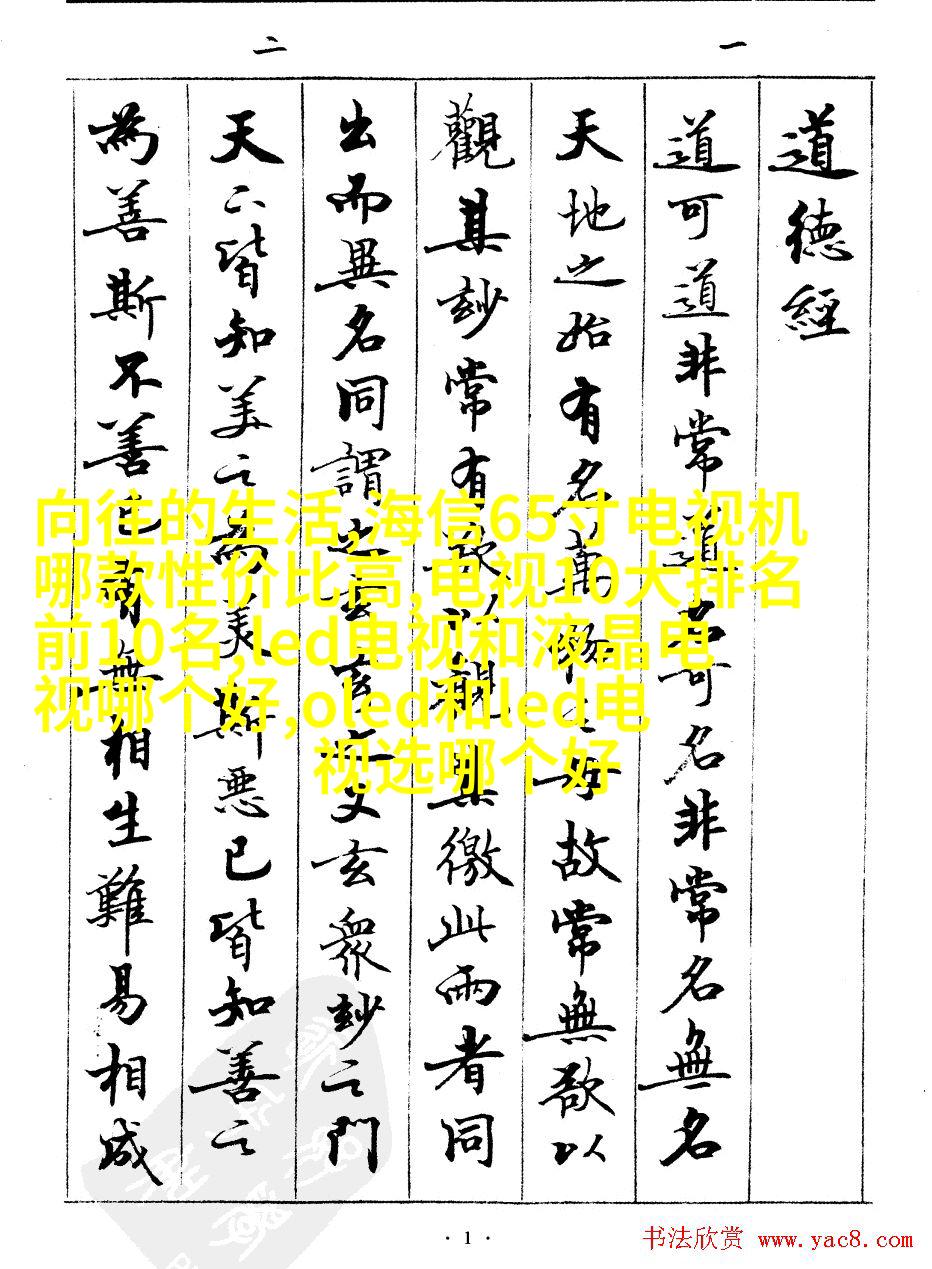 一
二
道德經
道可道非常道名可名非常名無名
天地之始有名萬物之母故常無欲以
觀其玅常有欲以觀其徼此兩者同
出而異名同謂之玄玄之又玄眾玅之門
天下皆知美之為美斯惡已皆知善之
為善斯不善已有無相生難易相成
向往的生活,海信65寸电视机
哪款性价比高,电视10大排名
前10名,led电视和液晶电
视哪个好,oled和led电
视选哪个好
· 1 ·
书法欣赏 www.yac8.com